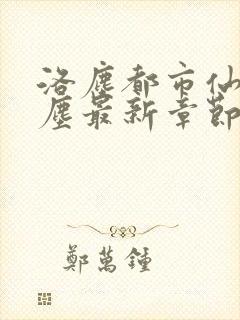 洛塵都市仙
塵最新章節
鄭萬鍾